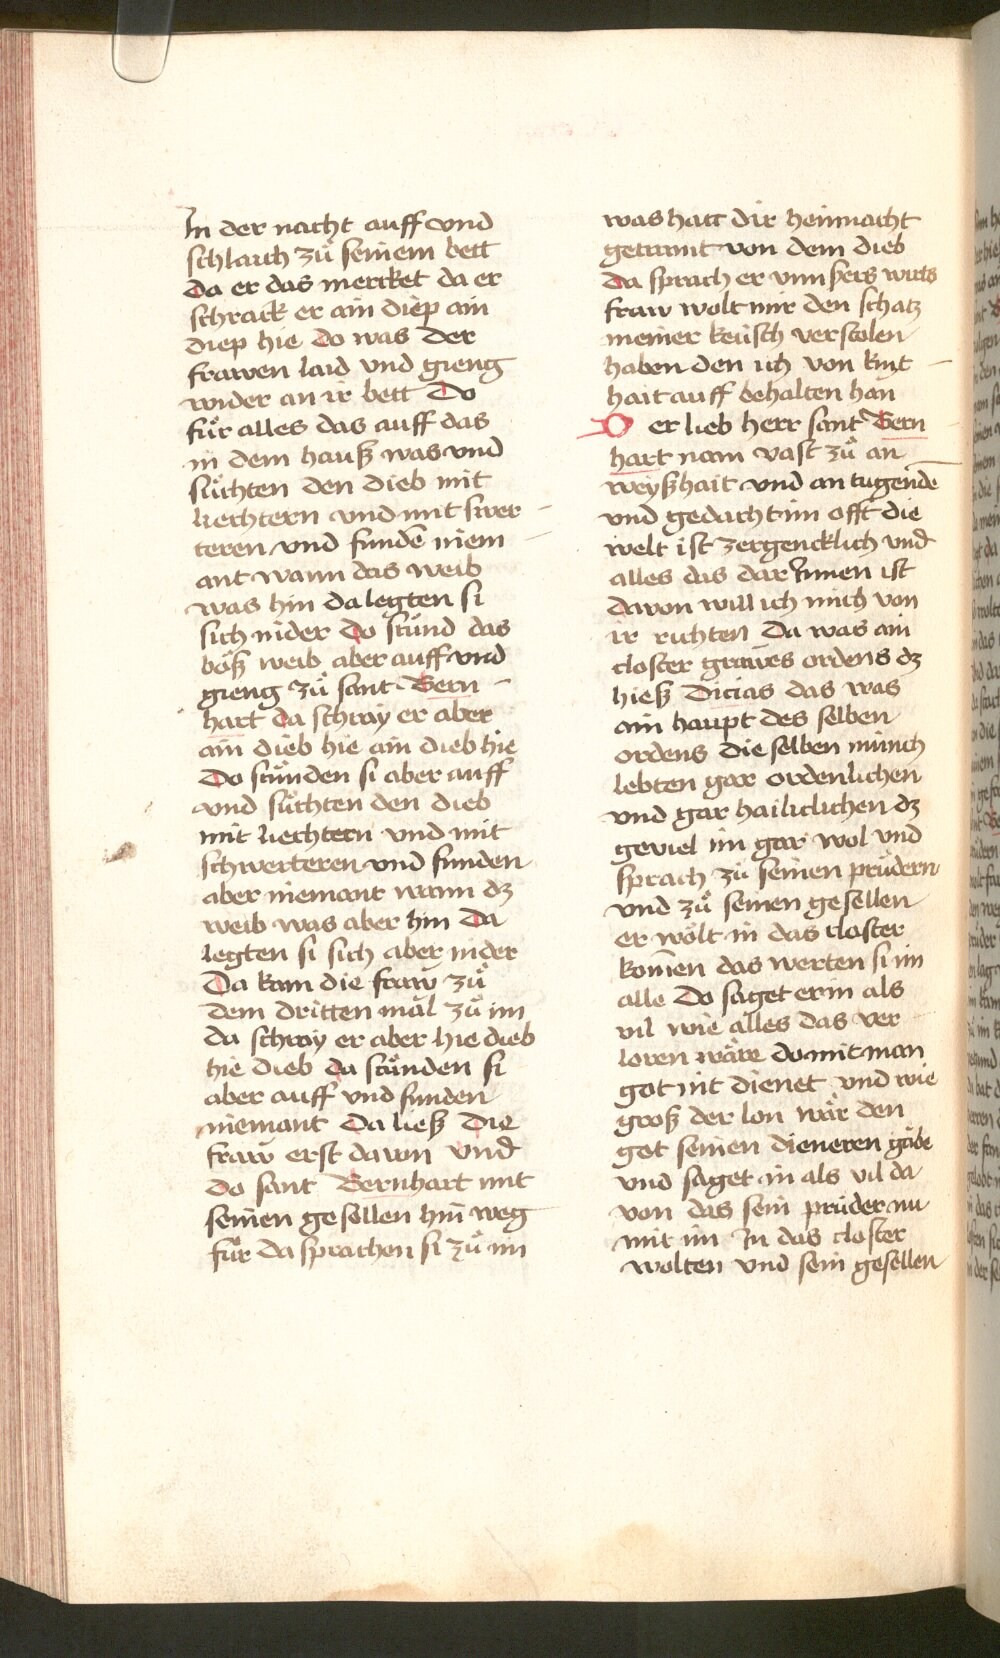 In der nacht auff vnd
schlaich zů seinem bett
Da er das mercket da er
schrack er ain diep ain
diep hie Do was der
frawen laid vnd gieng
wider an ir bett Do
fůr alles das auff das
in dem hauß was vnd
sůchten den dieb mit
liechtern vnd mit swer
teren vnd fundē niem
ant wann das weib
was hin da legten si
sich nider Do stůnd das
böß weib aber auff vnd
gieng zů sant Bern
hart Da schray er aber
ain dieb hie ain dieb hie
Do stůnden si aber auff
vnd sůchten den dieb
mit liechtern vnd mit
schwerteren vnd funden
aber niemant wann dz
weib was aber hin Da
legten si sich aber nider
Da kam die fraw zů
dem dritten mal zů im
da schray er aber hie dieb
hie dieb da stůnden si
aber auff vnd funden
niemant Da ließ die
fraw erst dauon vnd
do sant Bernhart mit
seinen gesellen hin weg
fůr da sprachen si zů im
was hatt dir heinnacht
getraumt von dem dieb
Da sprach er vnnsers wirts
fraw wolt mir den schatz
meiner keüsch verstolen
haben den ich von kint
hait auff behalten han
Der lieb herr sant Bern
hart nam vast zů an
weyßhait vnd an tugendē
vnd gedacht im offt die
welt ist zergencklich vnd
alles das dar Innen ist
dauon will ich mich von
ir richten Da was ain
closter grawes ordens dz
hieß Dicias das was
ain haupt des selben
ordens die selben münch
lebten gar ordenlichen
vnd gar hailiclichen dz
geuiel im gar wol vnd
sprach zů seinen prüdern
vnd zů seinen gesellen
er wölt in das closter
komen das werten si im
alle Do saget er in als
vil wie alles das ver
loren wäre do mit man
got nit dienet vnd wie
groß der lon wär den
got seinen dieneren gäbe
vnd saget in als vil da
von das sein prüder nu
mit im In das closter
wolten vnd sein gesellen